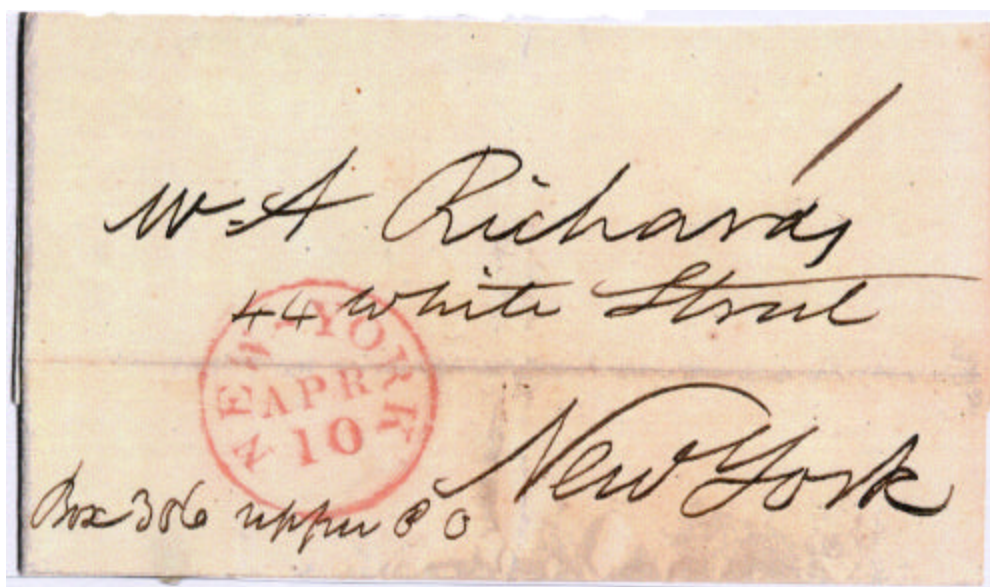 W=A Richards
44 White Street
New York
NEW-YORK
APR
10
Box 386 upper P O